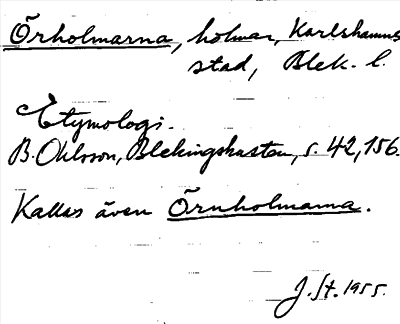 Örholmarna, holmar, Karlshamns
stad, Blek. l.
Etymologi.
B. Ohlsson, Blekingskusten, s. 42, 156.
Kallas även Örnholmarna.
J. St. 1955.